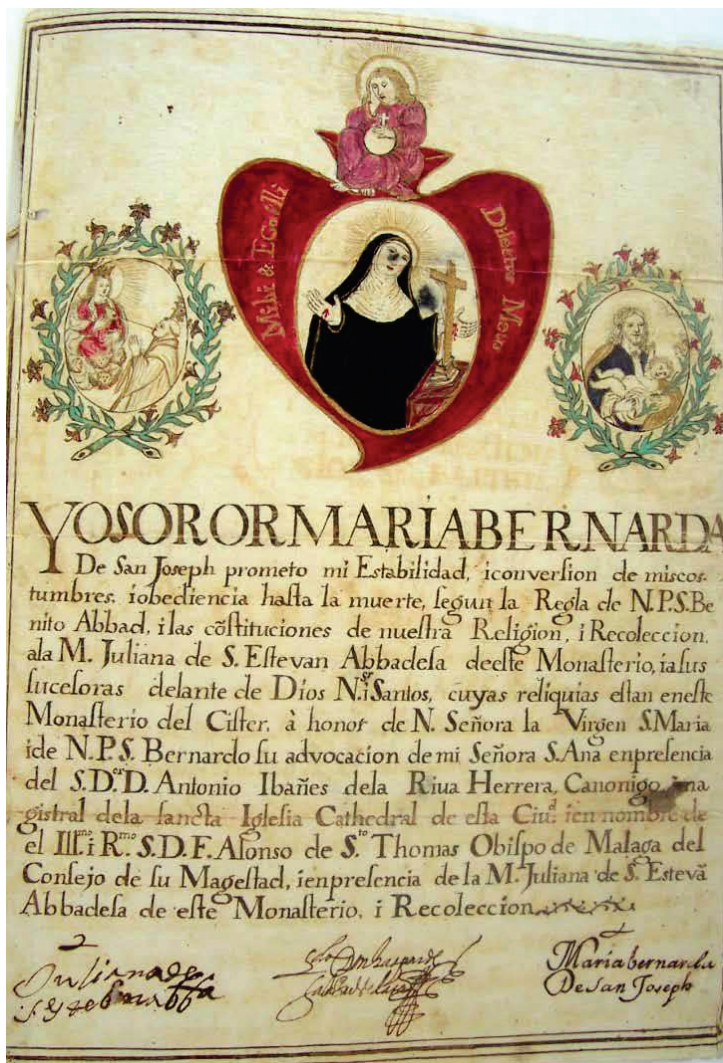 Mihi & Ego illi
Dilectus Meus
YO SOROR MARIA BERNARDA
De San Joseph prometo mi Estabilidad, i conversion de mis cos-
tumbres, i obediencia hasta la muerte, segun la Regla de N.P.S. Be
nito Abbad, i las cõstituciones de nuestra Religion, i Recoleccion,
a la M. Juliana de S. Estevan Abbadesa deeste Monasterio, ia sus
sucesoras delante de Dios N. Sr i Santos, cuyas reliquias estan eneste
Monasterio del Cister, à honor de N. Señora la Virgen S. Maria
ide N.P.S. Bernardo su advocacion de mi Señora S. Ana enpresencia
del S.D.or D. Antonio Ibañes dela Riua Herrera, Canonigo, ma
gistral dela sancta Iglesia Cathedral de esta Ciu.d ien nombre de
el Ill.mo i R.mo S.D.F. Alonso de S.to Thomas Obispo de Malaga del
Consejo de su Magestad, ienpresencia de la M. Juliana de S. Estevã
Abbadesa de este Monasterio, i Recoleccion
Juliana de
Maria bernarda
De San Joseph